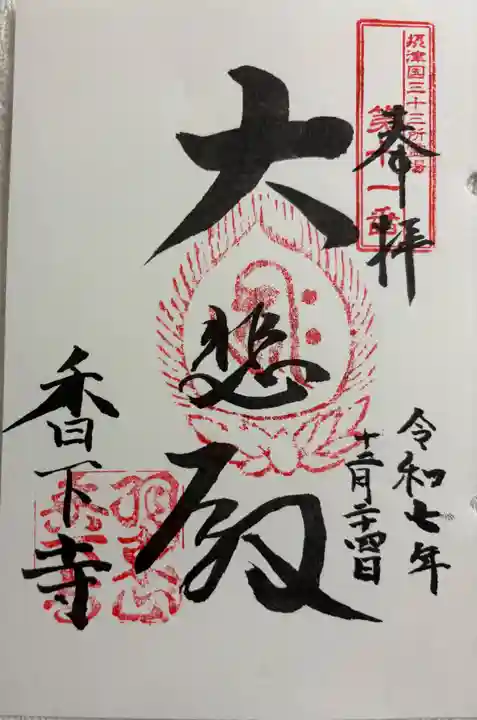 摂津国三十三所霊場
第十一番
奉拝
令和七年
十二月二十四日
大悲殿
香下寺